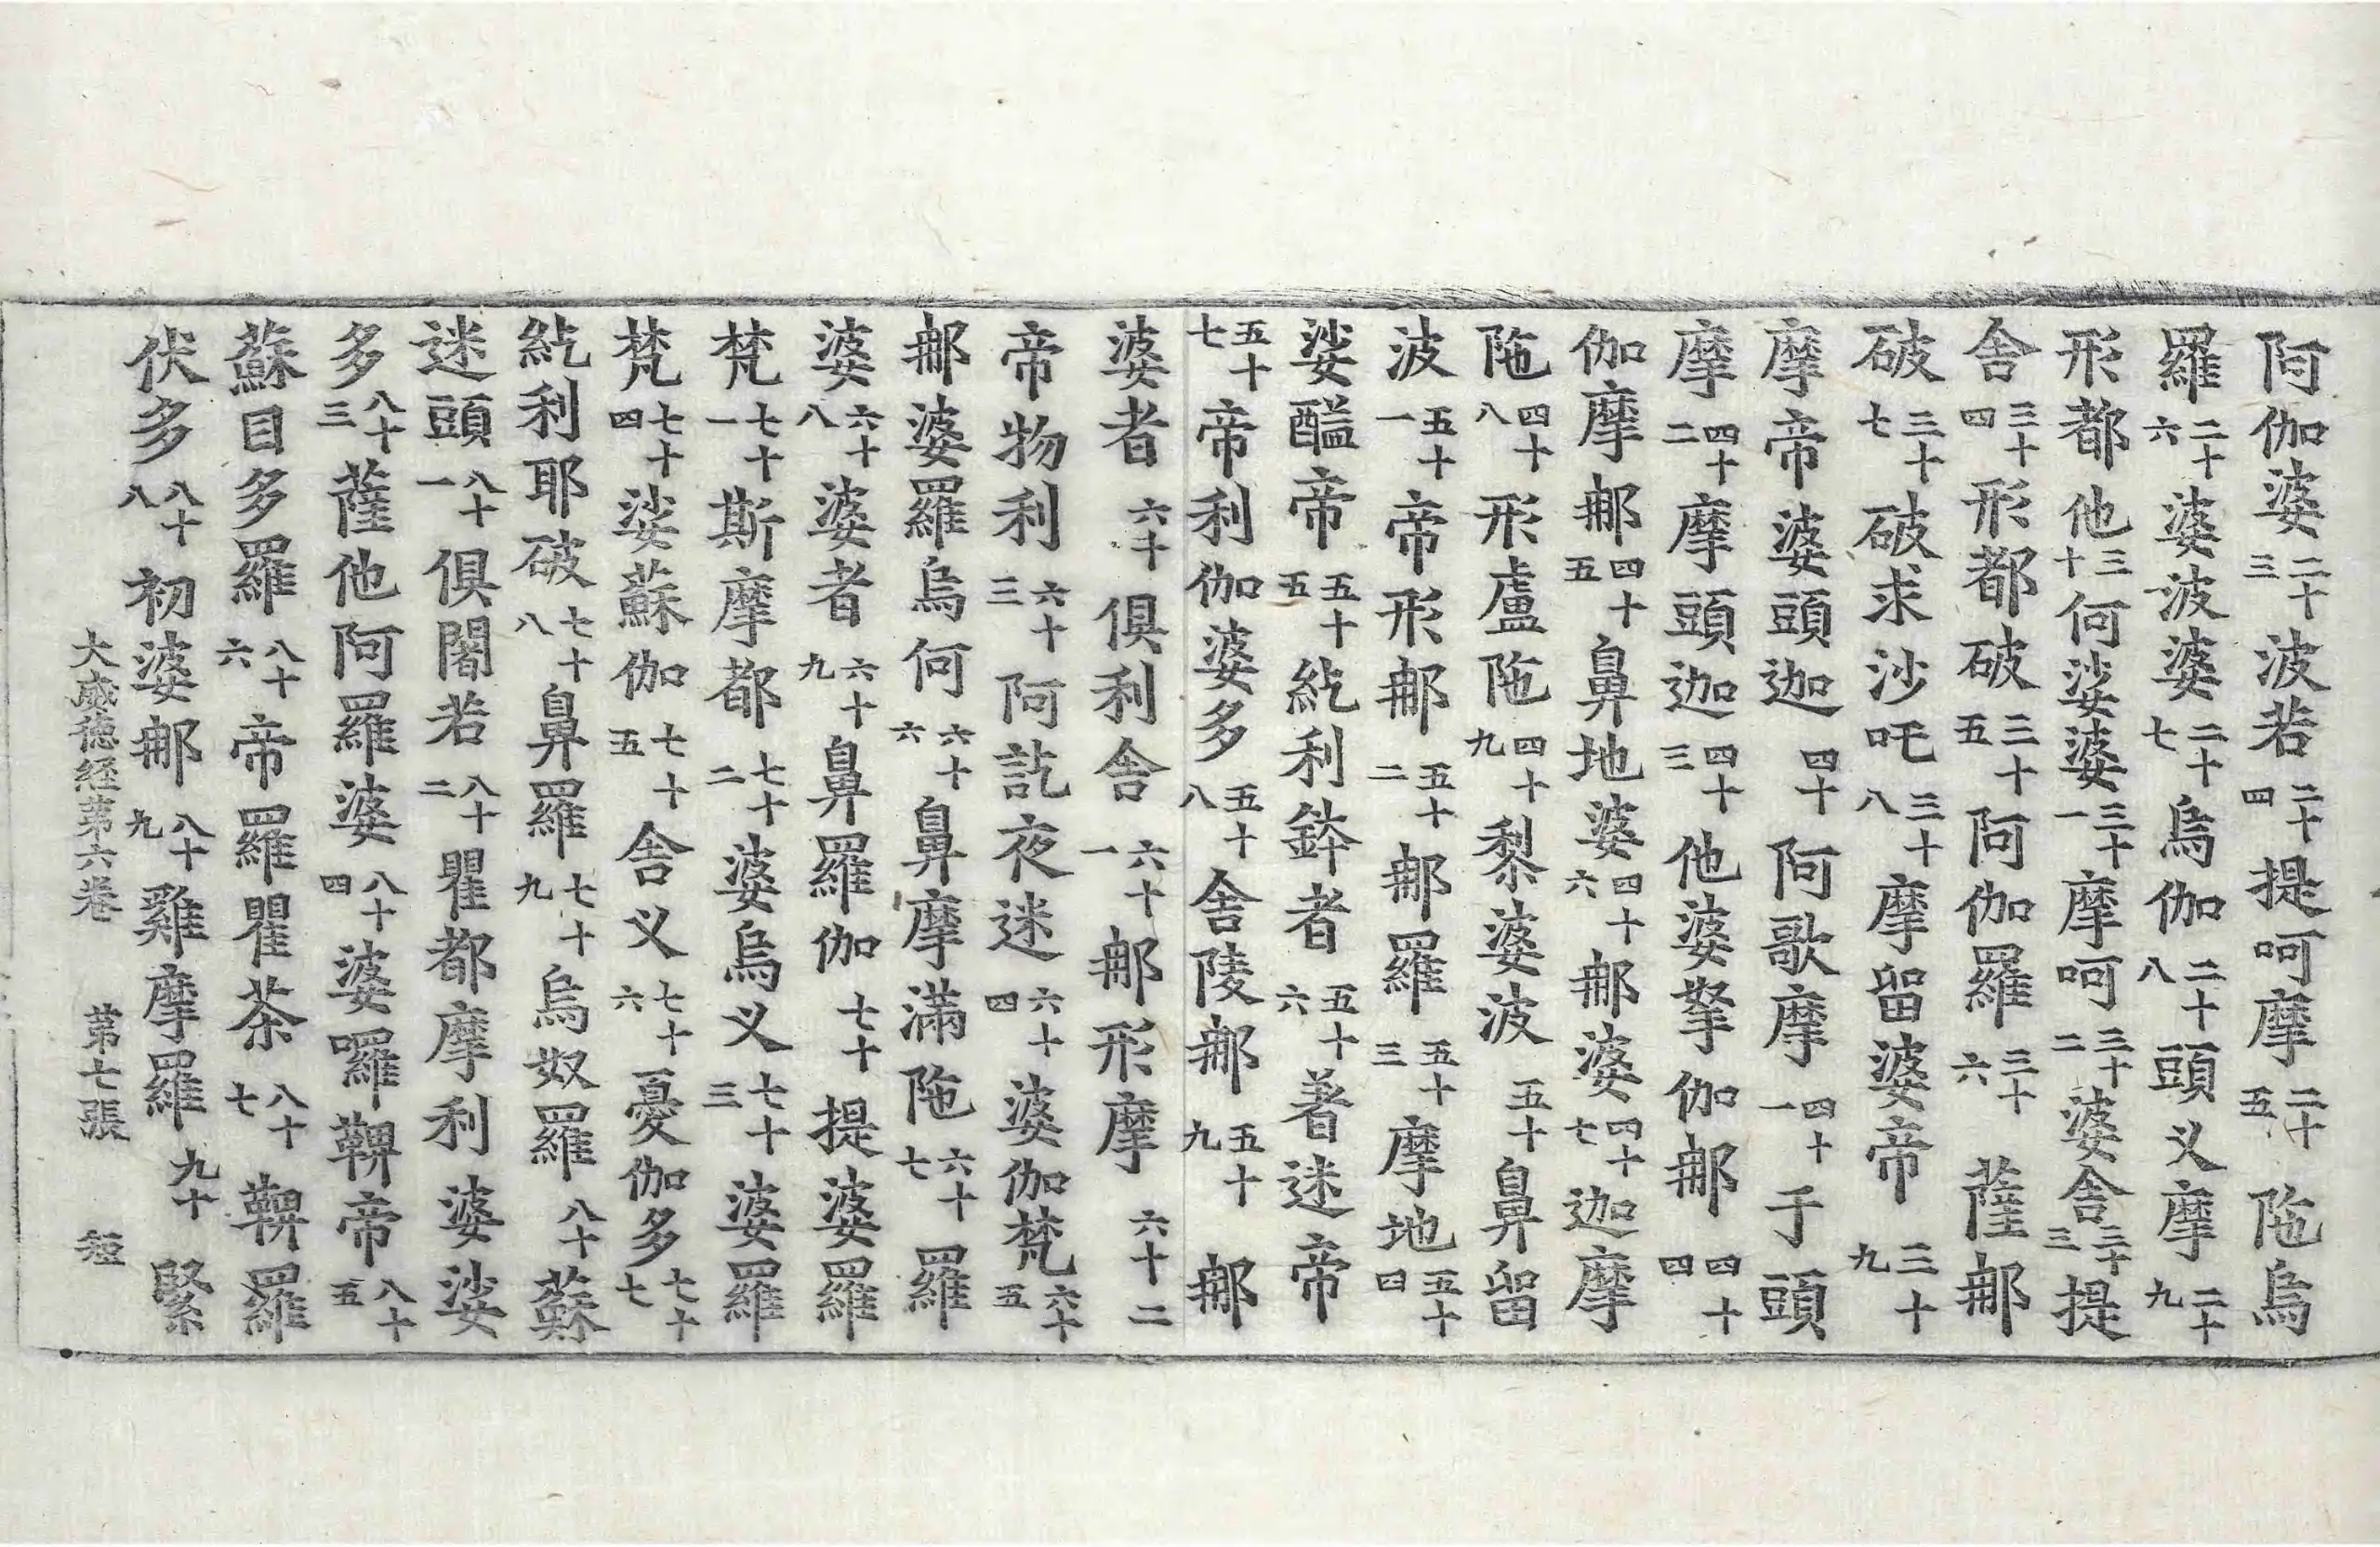 阿伽婆二十三波若二十四提呵摩二十五陁烏
羅二十六婆波婆二十七烏伽二十八頭义摩二十九
形都他三十何娑婆三十一摩呵三十二婆舎三十三提
舎三十四形都破三十五阿伽羅三十六薩䣺
破三十七破求沙吒三十八摩留婆帝三十九
摩帝婆頭迦四十阿歌摩四十一于頭
摩四十二摩頭迦四十三他婆拏伽䣺四十四
伽摩䣺四十五鼻地婆四十六䣺婆四十七迦摩
陁四十八形盧陁四十九黎婆波五十鼻留
波五十一帝形䣺五十二䣺羅五十三摩地五十四
娑醯帝五十五紇利鉢者五十六著迷帝
五十七帝利伽婆多五十八舎陵䣺五十九䣺
婆者六十俱利舎六十一䣺形摩六十二
帝物利六十三阿訖夜迷六十四婆伽梵六十五
䣺婆羅烏何六十六鼻摩滿陁六十七羅
婆六十八婆者六十九鼻羅伽七十提婆羅
梵七十一斯摩都七十二婆烏义七十三婆羅
梵七十四娑蘇伽七十五舎义七十六憂伽多七十七
紇利耶破七十八鼻羅七十九烏奴羅八十蘇
迷頭八十一俱闍若八十二瞿都摩利婆娑
多八十三薩他阿羅婆八十四婆囉鞞帝八十五
蘇目多羅八十六帝羅瞿荼八十七鞞羅
伏多八十八初婆䣺八十九雞摩羅九十緊
大威德経第六卷 第七張